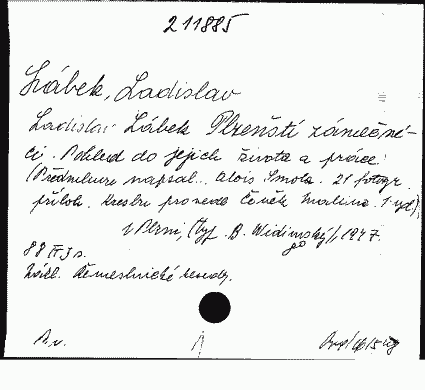 211885
Lábek, Ladislav
Ladislav Lábek Plzeňští zámeční-
ci. Pohled do jejich života a práce.
(Předmluvu napsal Alois Smola. 21 fotogr.
příloh. Kresbu provedl Čeněk Malina. 1. vyd.)
V Plzni, (typ. B. Widimský), 1947.
88 s.
Zákl. řemeslnické besedy.